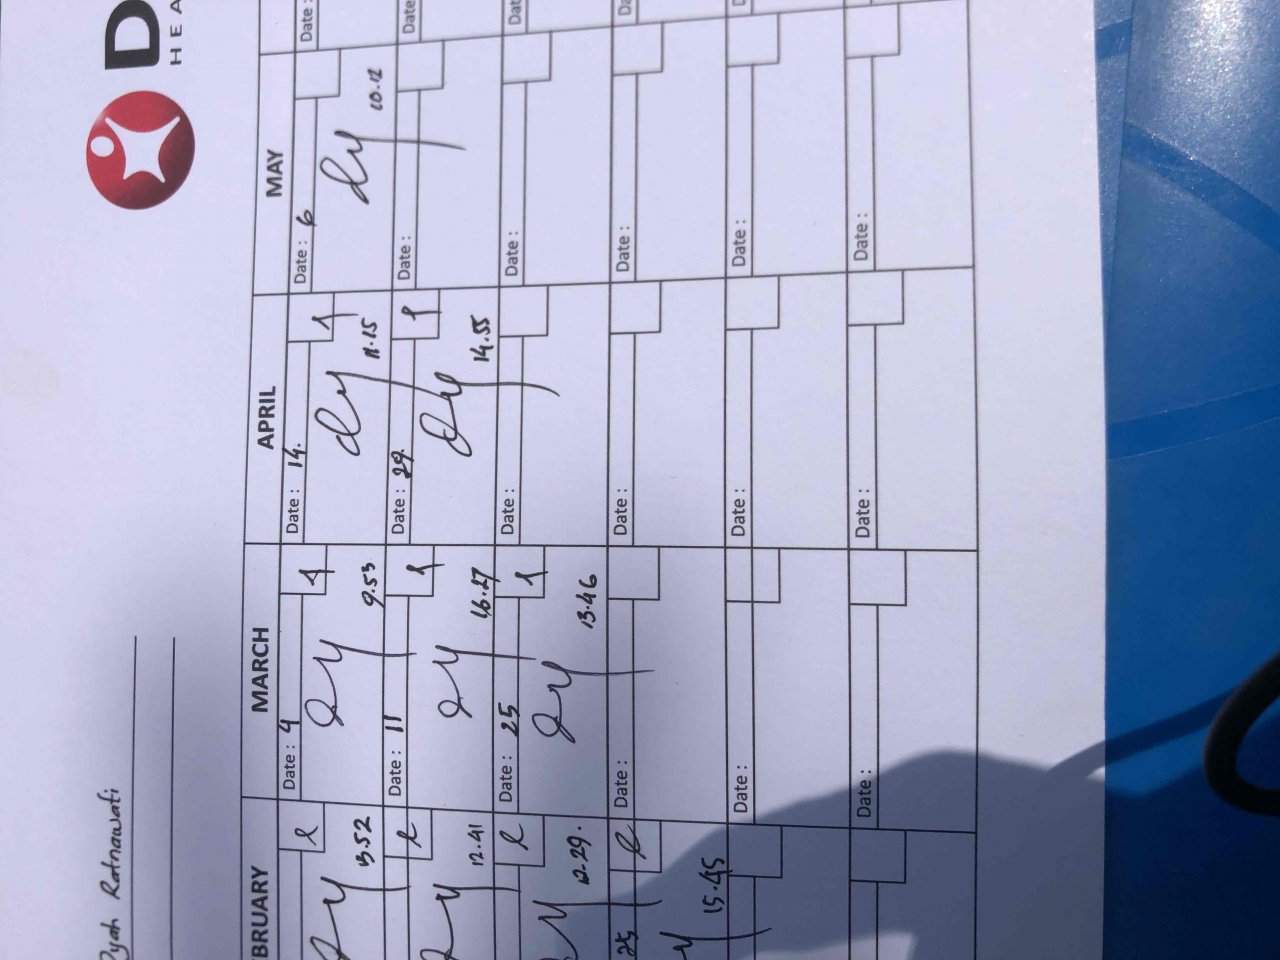 D
HEA
Dyah Ratnawati
BRUARY
MARCH
APRIL
MAY
13.52
Date : 4
9.53
Date : 14.
11.15
Date : 6
10.12
Date :
12.41
Date : 11
16.27
Date : 29.
14.55
Date :
Date :
12.29.
Date : 25
13.46
Date :
Date :
Dat
25
15.45
Date :
Date :
Date :
Da
Date :
Date :
Date :
D
Date :
Date :
Date :